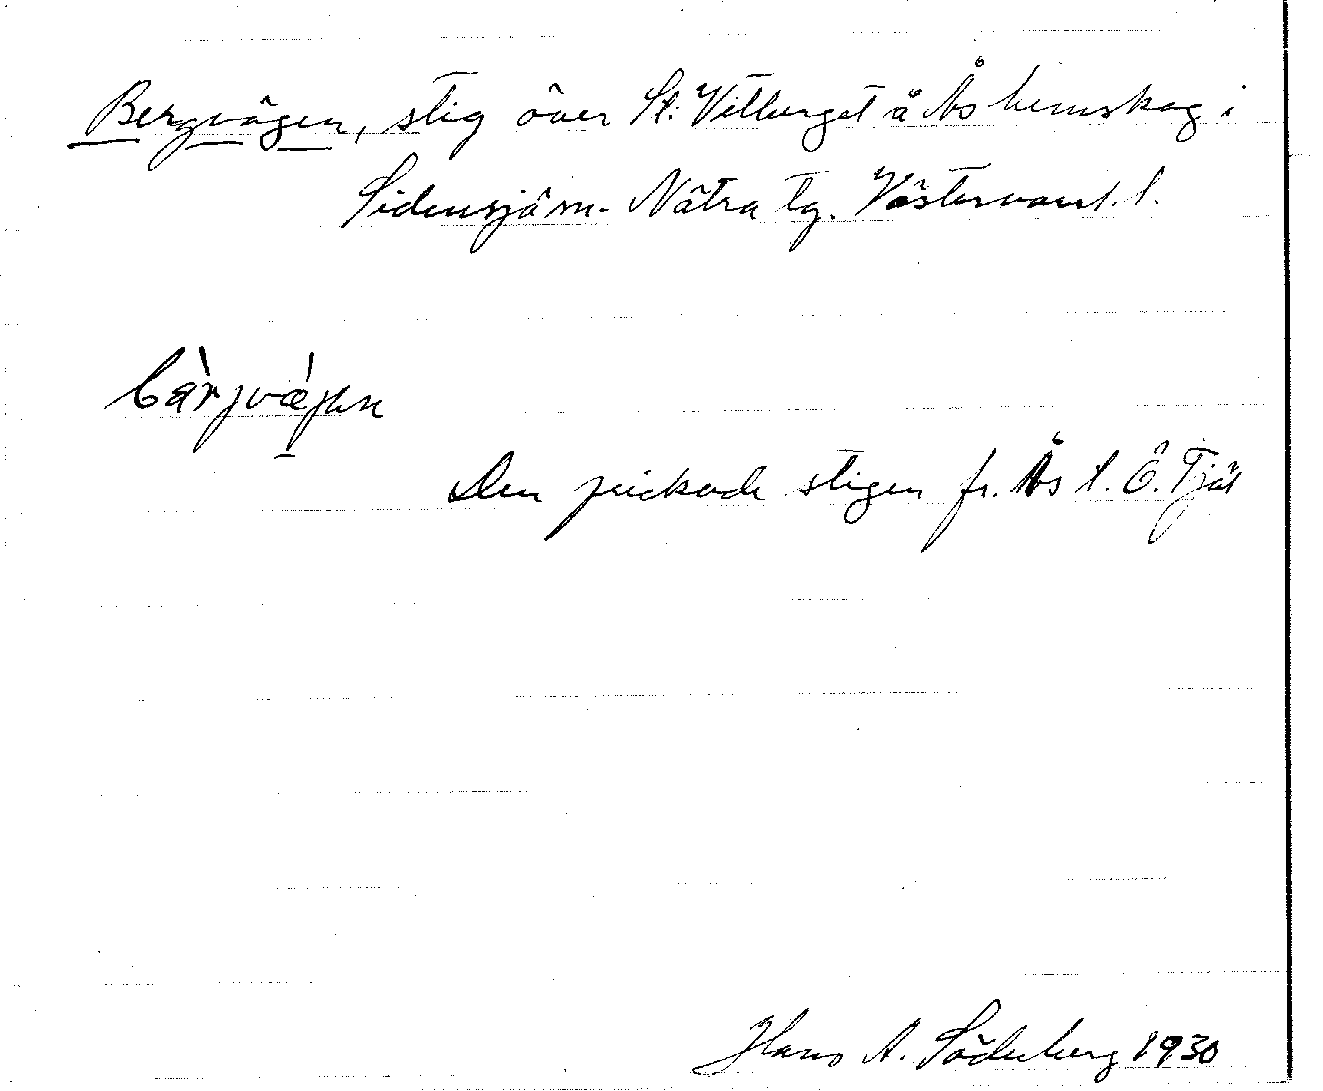 Bergvägen, stig över St. Vitberget å Ås hemskog i
Sidensjö sn. Nätra tg. Västernorrl. l.
bärjvä́jen
Den prickade stigen fr. Ås t. Ö. Tjäl
Hans A. Söderberg 1930